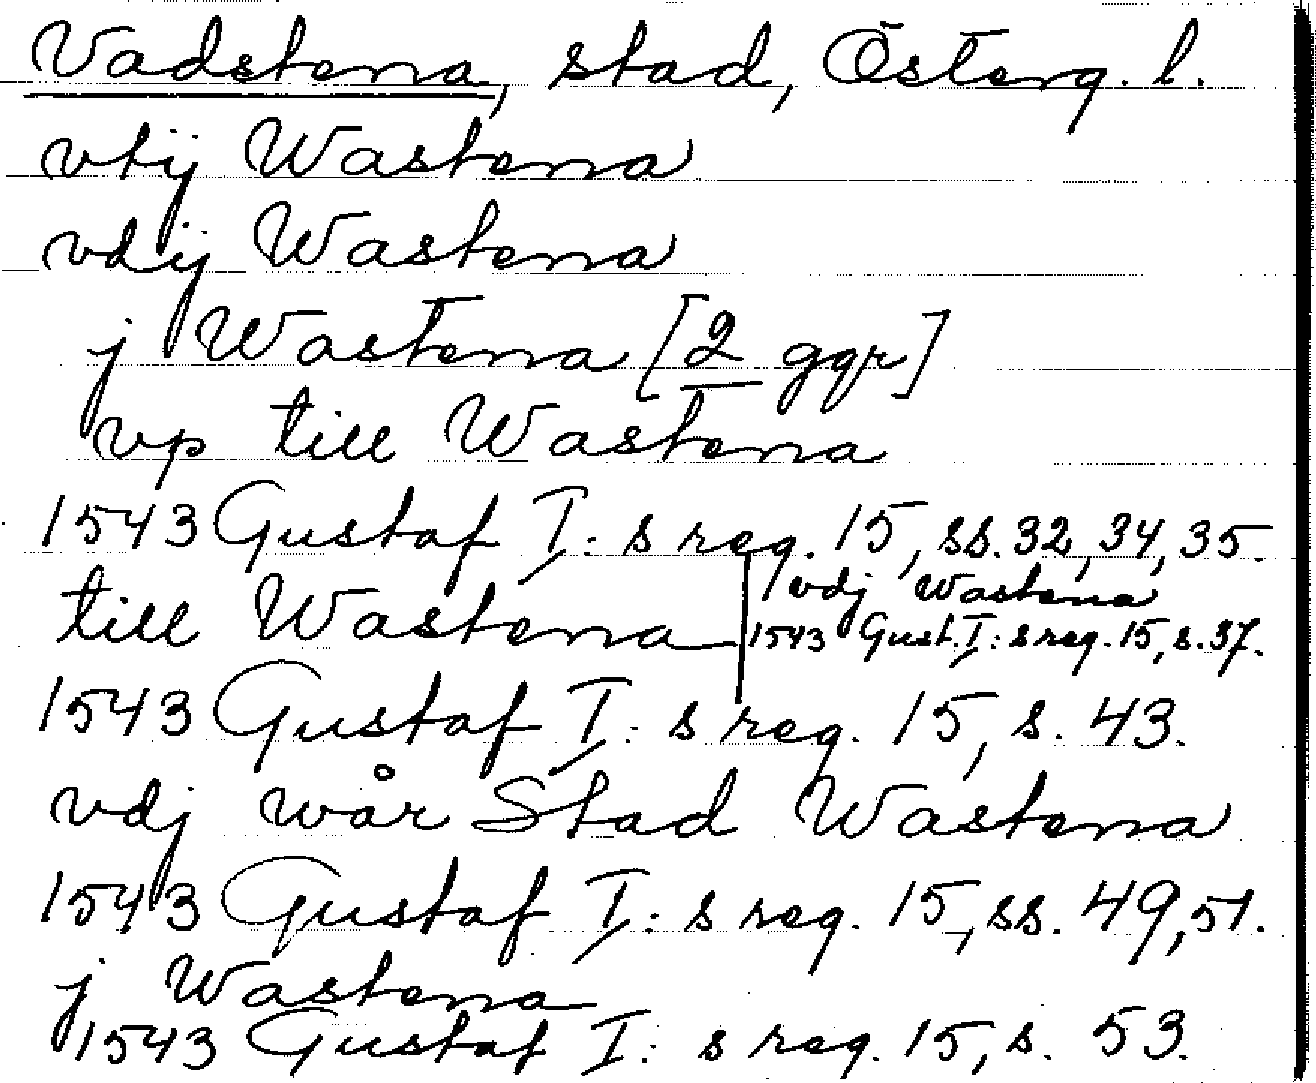 Vadstena, stad, Österg. l.
vtij Wastena
vdij Wastena
j Wastena [2 ggr]
vp till Wastena
1543 Gustaf I: s reg. 15, ss. 32, 34, 35.
till Wastena
vdj Wastena
1543 Gust. I: s reg. 15, s. 37.
1543 Gustaf I: s reg. 15, s. 43.
vdj wår Stad Wastena
1543 Gustaf I: s reg. 15, ss. 49, 51.
j Wastena
1543 Gustaf I: s reg. 15, s. 53.